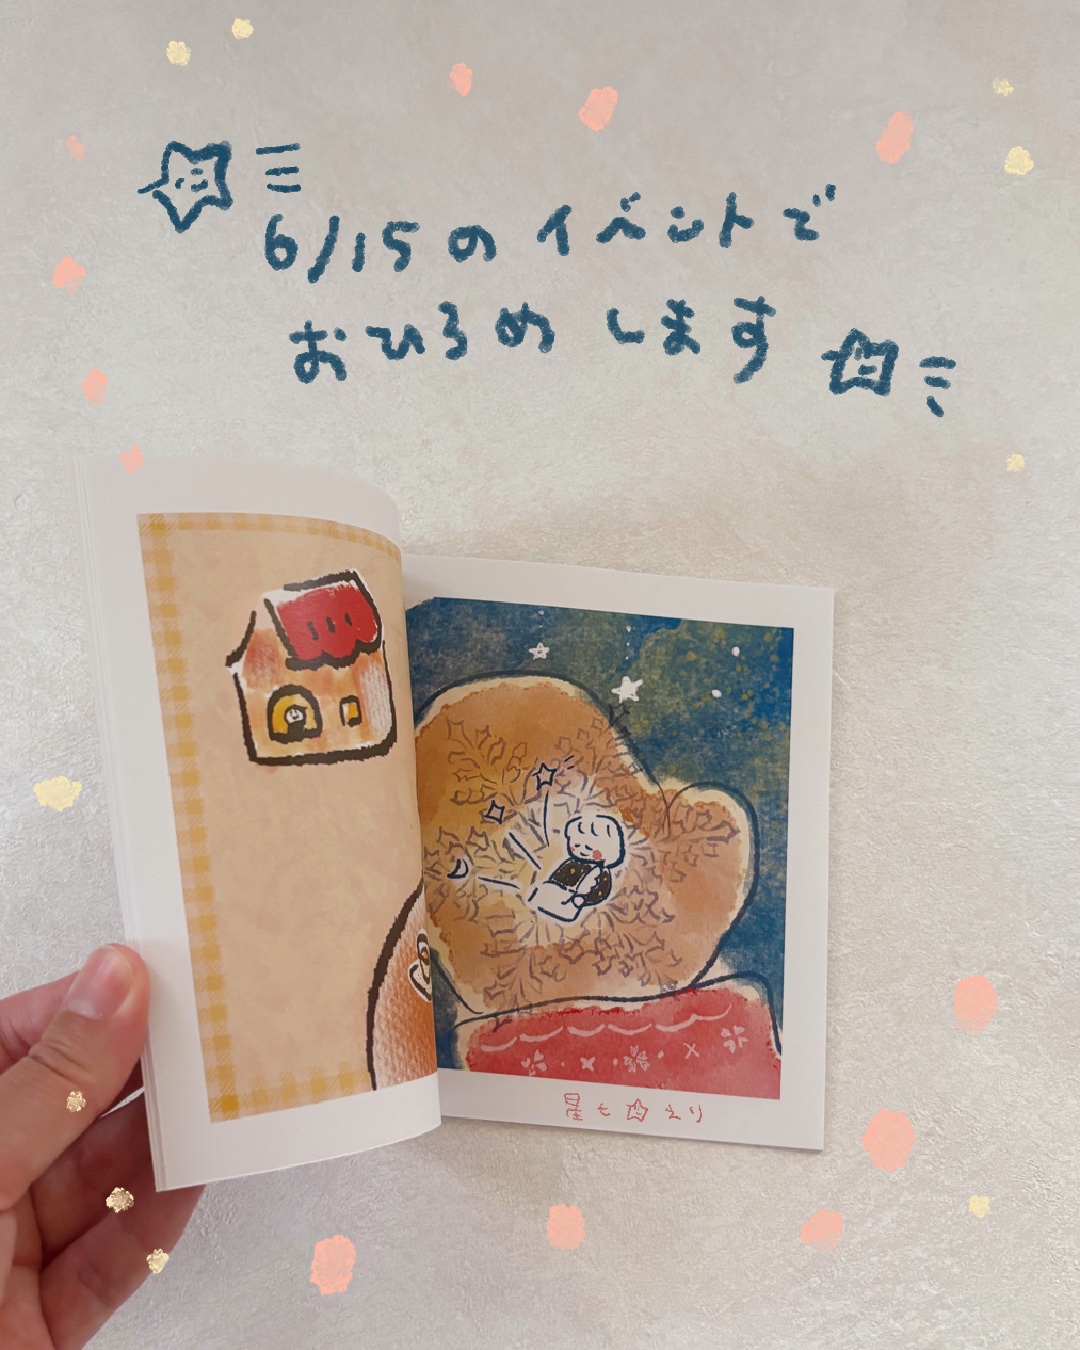 6/15の イベントで
おひろめ します
星も☆えり